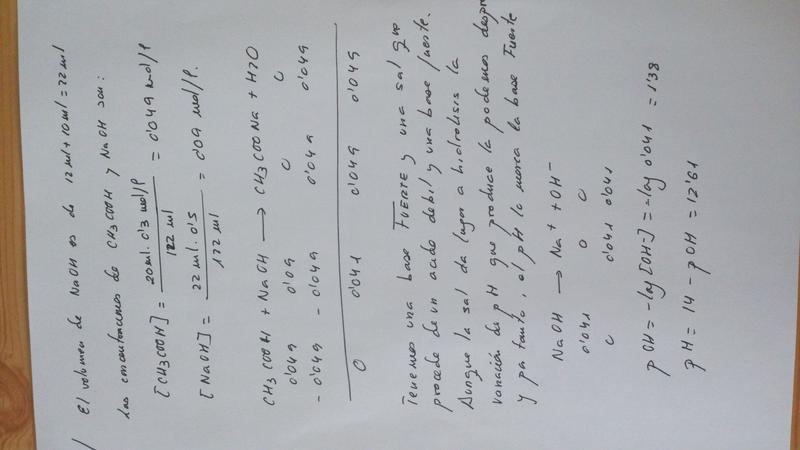 El volumen de NaOH es de 12 ml + 10 ml = 22 ml
Las concentraciones de CH3COOH y NaOH son:
[CH3COOH] = 20 ml. 0'3 mol/l / 122 ml = 0'049 mol/l
[NaOH] = 22 ml. 0'5 / 122 ml = 0'09 mol/l.
CH3COOH + NaOH → CH3COONa + H2O
0'049 0'09 0 0
- 0'049 - 0'049 0'049 0'049
0 0'041 0'049 0'049
Tenemos una base FUERTE y una sal que
procede de un acido debil y una base fuerte.
Aunque la sal da lugar a hidrolisis la
variación de pH que produce la podemos despre
y pa tanto, el pH lo marca la base Fuerte
NaOH → Na+ + OH-
0'041 0 0
0 0'041 0'041
pOH = -log [OH-] = -log 0'041 = 1'38
pH = 14 - pOH = 12'61